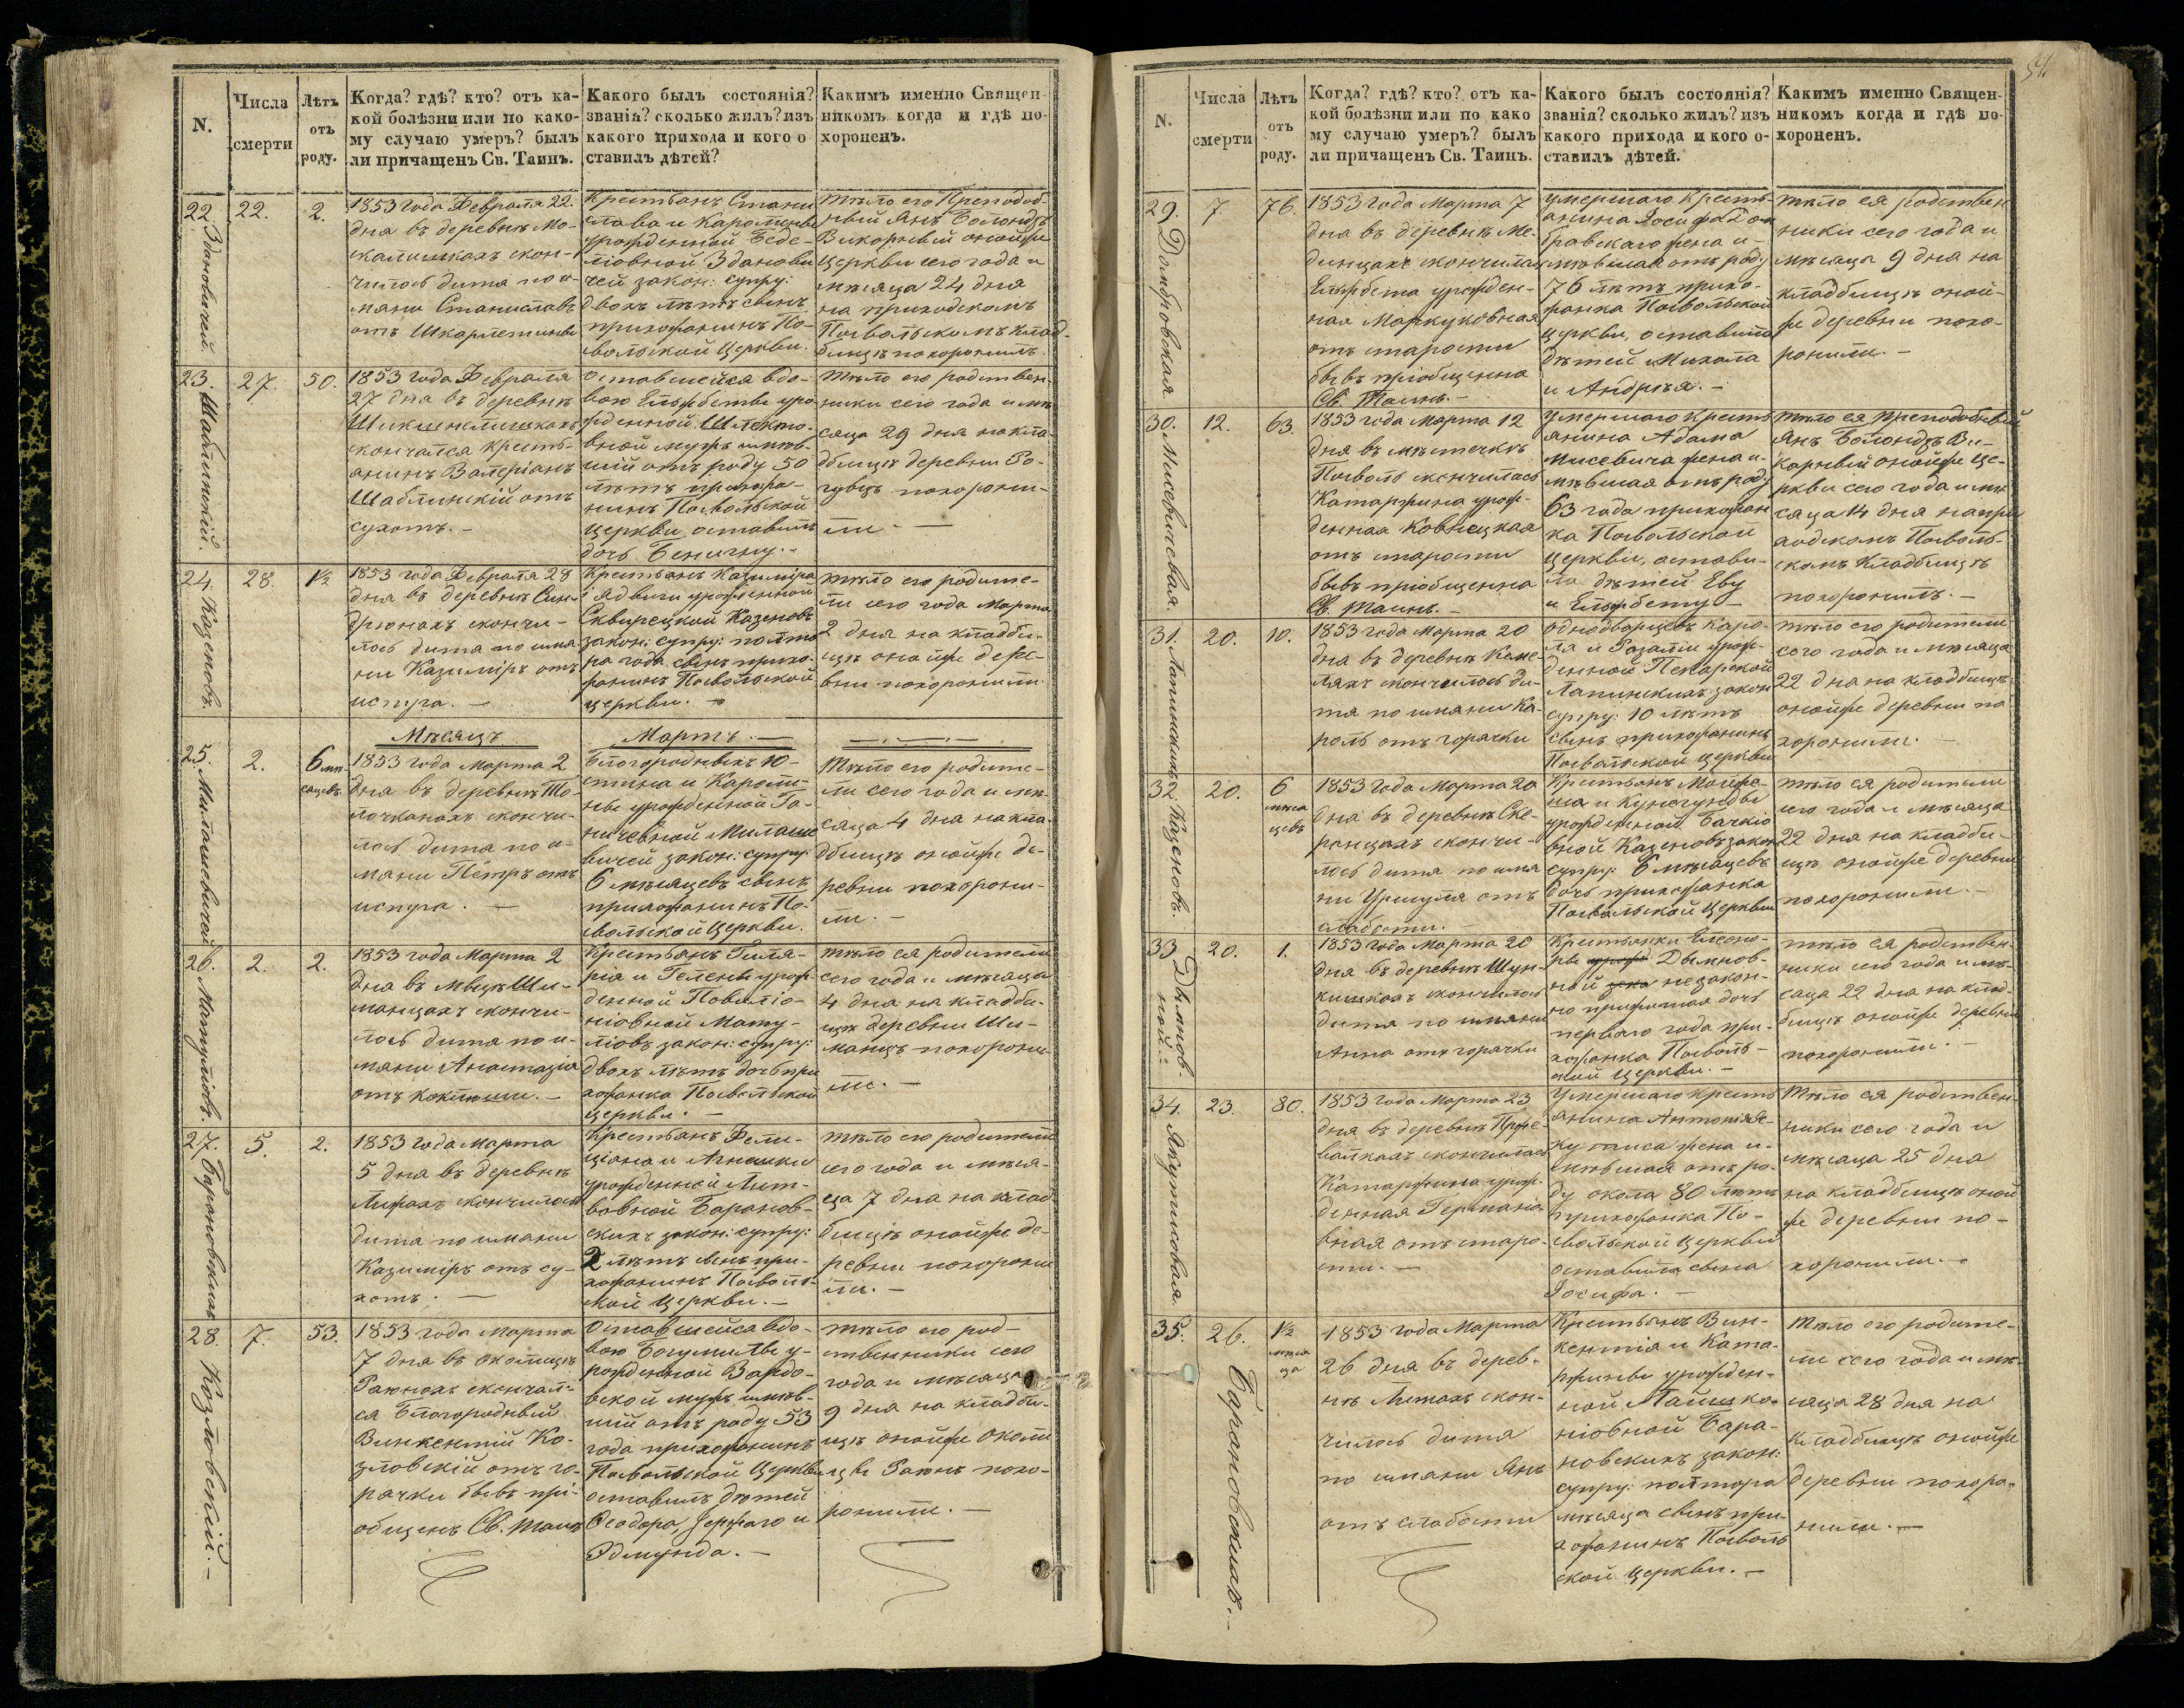 54.
N.
Числа смерти
Лѣтъ отъ роду.
Когда? гдѣ? кто? отъ ка-
кой болѣзни или по како-
му случаю умеръ? былъ
ли причащенъ Св. Таинъ.
Какого былъ состоянія?
званія? сколько жилъ? изъ
какого прихода и кого о
ставилъ дѣтей?
Какимъ именно Священ-
никомъ когда и гдѣ по-
хороненъ.
22. Здановичей.
22.
2.
1853 года Февраля 22.
дня въ деревнѣ Мо-
скалишкахъ скон-
чилось дитя по и
мяни Станиславъ
отъ Шкарлетины
Крестьянъ Стани
слава и Каролины
урожденной Беде-
ліовной Здонови
чей закон: супру:
двохъ лѣтъ сынъ
прихожанинъ По-
вольской Церкви.
Тѣло его Преподоб-
ный Янъ Болондзъ
Викорный онойже
Церкви сего года и
мѣсяца 24 дня
на приходскомъ
Посвольскомъ клад-
бищѣ похоронилъ.
23. Шаблинскій.
27.
50.
1853 года Февраля
27 дня въ деревнѣ
Шикшнлишкахъ
скончался кресть-
янинъ Валеріанъ
Шаблинскій отъ
сухотъ.-
оставшейся вдо-
вою Ельжбеты уро
жденной Шлекто-
вной мужъ имѣв-
шій отъ роду 50
лѣтъ прихожа-
нинъ Посвольской
Церкви оставилъ
дочь Бенигну.-
Тѣло его родствен-
ники сего года и мѣ
сяца 29 дня накла-
дбищѣ деревни Ро-
гувцъ похорони-
ли.-
24. Казеновъ.
28.
1/2
1853 года Февраля 28
дня въ деревнѣ Син-
дрюнахъ скончи-
лось дитя по имя
ни Казиміръ отъ
испуга.-
Крестьянъ Казиміра
и Ядвиги урожденной
Сквирецкой Казеновъ
закон: супру: полто
ра года сынъ прихо-
жанинъ Посвольской
церкви.-
тѣло его родите-
ли сего года Марта
2 дня на кладби-
щѣ онойже дере-
вни похоронили.
Мѣсяцъ Мартъ.-
25. Милашевичей
2.
6 мѣ-
сяцевъ.
1853 года Марта 2
дня въ деревнѣ То-
лочканахъ скончи-
лось дитя по и-
мяни Пётръ отъ
испуга.-
Благородныхъ Ю-
стина и Кароли-
ны урожденной Га-
ничевной Милаше
вичей закон: супру:
6 мѣсяцевъ сынъ
прихожанинъ По-
свольской Церкви.
Тѣло его родите-
ли сего года и мѣ-
сяца 4 дня на кла-
дбищѣ онойже де-
ревни похорони-
ли.-
26. Матуліовъ.
2.
2.
1853 года Марта 2
дня въ мызѣ Ши-
манцахъ скончи-
лось дитя по и-
мяни Анастазія
отъ коклюши.-
Крестьянъ Гиля-
рія и Гелены урож-
денной Повиліо-
ніовной Мату-
ліовъ закон: супру:
двохъ лѣтъ дочь при
хожанка Посвольской
церкви.-
тѣло ея родители
сего года и мѣсяца
4 дня на кладби-
щѣ деревни Ши-
манцъ похорони-
ли.-
27. Барановскихъ
5.
2.
1853 года Марта
5 дня въ деревнѣ
Лижахъ скончилось
дитя по имяни
Казиміръ отъ су-
хотъ.-
Крестьянъ Фели-
ціана и Агнешки
урожденной Лит-
вовной Баранов-
скихъ закон: супру:
2 лѣтъ сынъ при-
хожанинъ Посволь-
ской Церкви.-
тѣло его родители
сего года и мѣся-
ца 7 дня на клад
бищѣ онойже де-
ревни похорони
ли.-
28. Козловскій.-
7.
53.
1853 года Марта
7 дня въ околицѣ
Раюнахъ скончал-
ся Благородный
Винкентій Ко-
зловскій отъ го-
рячки бывъ прі-
общенъ Св. Таинъ
Оставшейся вдо-
вою Богумилы у-
рожденной Вардо-
вской мужъ имѣв-
шій отъ роду 53
года прихожанинъ
Посвольской Церкви
оставилъ дѣтей
Ѳеодора, Іержаго и
Эдмунда.-
тѣло его род-
ственники сего
года и мѣсяца
9 дня на кладби-
щѣ онойже околи
цы Раюнъ похо-
ронили.-
N.
Числа смерти
Лѣтъ отъ роду.
Когда? гдѣ? кто? отъ ка-
кой болѣзни или по како
му случаю умеръ? былъ
ли причащенъ Св. Таинъ.
Какого былъ состоянія?
званія? сколько жилъ? изъ
какого прихода и кого о-
ставилъ дѣтей.
Какимъ именно Священ-
никомъ когда и гдѣ по-
хороненъ.
29. Домбровская
7.
76.
1853 года Марта 7
дня въ деревнѣ Ме-
динцахъ скончилась
Ельжбета урожден-
ная Маркуновная
отъ старости
бывъ пріобщенна
Св. Таинъ.-
умершаго кресть-
янина Іосифа Дом
бравскаго жена и-
мѣвшая отъ роду
76 лѣтъ прихо-
жанка Посвольской
Церкви, оставила
дѣтей Михала
и Андрея.-
тѣло ея родствен
ники сего года и
мѣсяца 9 дня на
кладбищѣ оной-
же деревни похо-
ронили.-
30. Мисевичевая
12.
63.
1853 года Марта 12
дня въ мѣстечкѣ
Посволь скончилась
Катаржина урож-
денная Ковнацкая
отъ старости
бывъ пріобщенна
Св. Таинъ.-
Умершаго кресть
янина Адама
Мисевича жена и-
мѣвшая отъ роду
63 года прихожан
ка Посвольской
Церкви, остави-
ла дѣтей Еву
и Ельжбету-
Тѣло ея Преподобный
Янъ Болондзъ Ви-
карный онойже Це-
ркви сего года и мѣ
сяца 14 дня напри
ходскомъ Посволь-
скомъ кладбищѣ
похоронилъ.-
31. Лапинскихъ
20.
10.
1853 года Марта 20
дня въ деревнѣ Киме-
ляхъ скончилось ди-
тя по имяни Ка-
роль отъ горячки
однодворцевъ Каро-
ля и Розаліи урож-
денной Пекарской
Лапинскихъ закон
супру: 10 лѣтъ
сынъ прихожанинъ
Посвольской Церкви
тѣло его родители
сего года и мѣсяца
22 дня на кладбищѣ
онойже деревни по
хоронили.-
32. Казеновъ.
20.
6
мѣся
цевъ
1853 года Марта 20
дня въ деревнѣ Ске-
рянцахъ скончи-
лось дитя по имя
ни Уршуля отъ
слабости.
Крестьянъ Матѳе-
ша и Кунегунды
урожденной Бачкіо
вной Казеновъ закон
супру: 6 мѣсяцевъ
дочь прихожанка
Посвольской Церкви
тѣло ея родители
сего года и мѣсяца
22 дня на кладби-
щѣ онойже деревни
похоронили.-
33 Дымнов-
ной.-
20.
1.
1853 года Марта 20
дня въ деревнѣ Шун-
кишкахъ скончилось
дитя по имяни
Анна отъ горячки
Крестьянки Елено-
ры урож Дымнов-
ной зако незакон-
но прижитая дочь
перваго года при-
хожанка Посволь-
ской Церкви.-
тѣло ея родствен-
ники сего года и мѣ-
сяца 22 дня на клад-
бищѣ онойже деревни
похоронили.-
34. Якутисовая
23.
80.
1853 года Марта 23
дня въ деревнѣ Прже-
валкахъ скончилась
Катаржина урож-
денная Германо-
вная отъ старо-
сти.-
Умершаго кресть
янина Антонія Я-
кутиса жена и-
мѣвшая отъ ро-
ду окола 80 лѣтъ
прихожанка По-
свольской Церкви
оставила сына
Іосифа.-
Тѣло ея родствен-
ники сего года и
мѣсяца 25 дня
на кладбищѣ оной
же деревни по-
хоронили.-
35. Барановскихъ.-
26.
1 1/2
мѣся
ца
1853 года Марта
26 дня въ дерев-
нѣ Лижахъ скон-
чилось дитя
по имяни Янъ
отъ слабости
Крестьянъ Вин-
кентія и Ката-
ржины урожден-
ной Пашко-
ніовной Бара-
новскихъ закон:
супру: полтора
мѣсяца сынъ при-
хожанинъ Посволь
ской Церкви.-
Тѣло его родите-
ли сего года и мѣ-
сяца 28 дня на
кладбищѣ онойже
деревни похоро-
нили.-